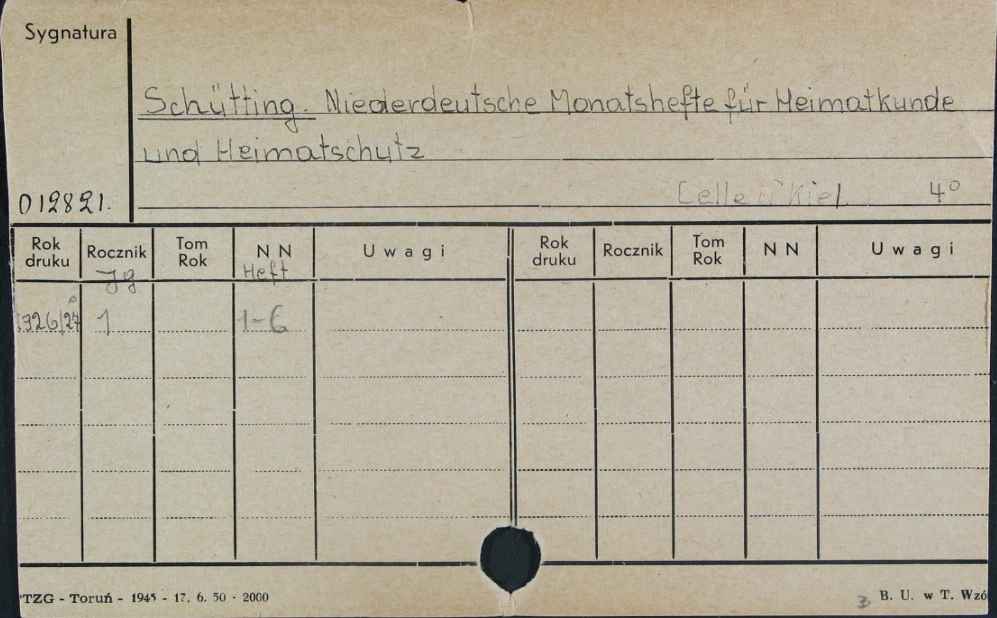 Sygnatura
Schütting. Niederdeutsche Monatshefte für Heimatkunde
und Heimatschutz
Celle Kiel 4°
012821.
Rok druku Rocznik Tom Rok N N U w a g i Rok druku Rocznik Tom Rok N N U w a g i
Jg Heft
1926/27 1 1-6
TZG - Toruń - 1945 - 17. 6. 50 · 2000
3 B. U. w T. Wzó